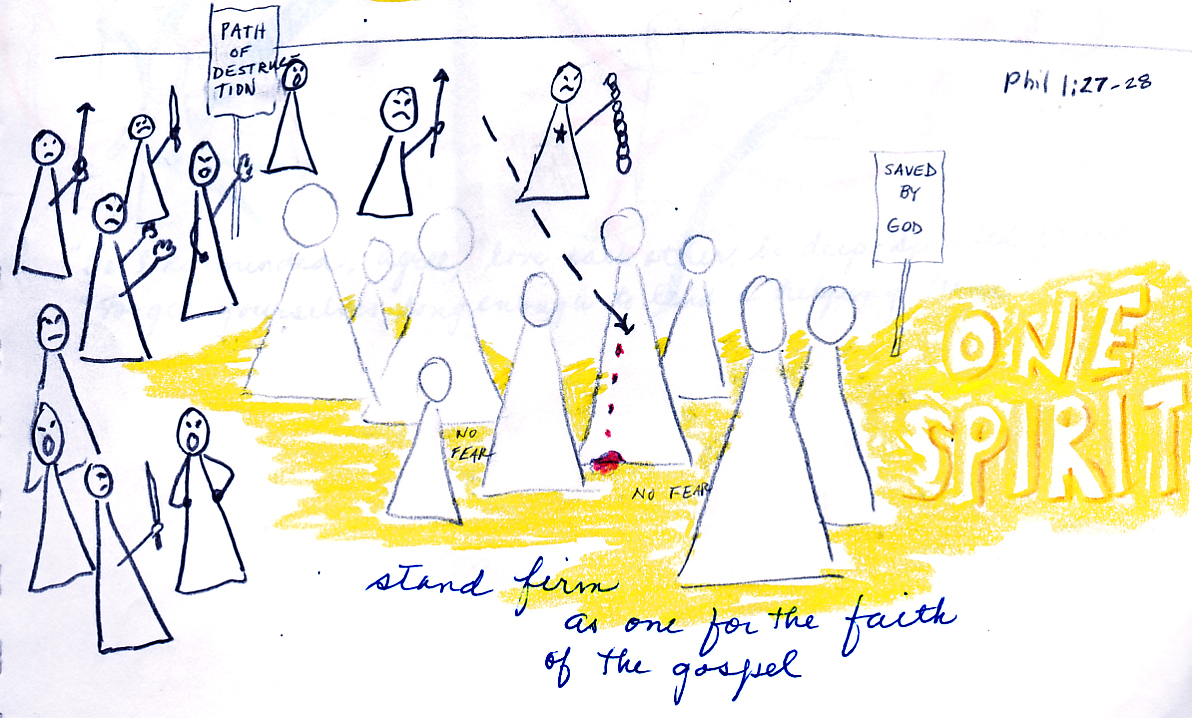 PATH
OF
DESTRUC-
TION
Phil 1:27-28
SAVED
BY
GOD
ONE
SPIRIT
NO
FEAR
NO FEAR
stand firm
as one for the faith
of the gospel